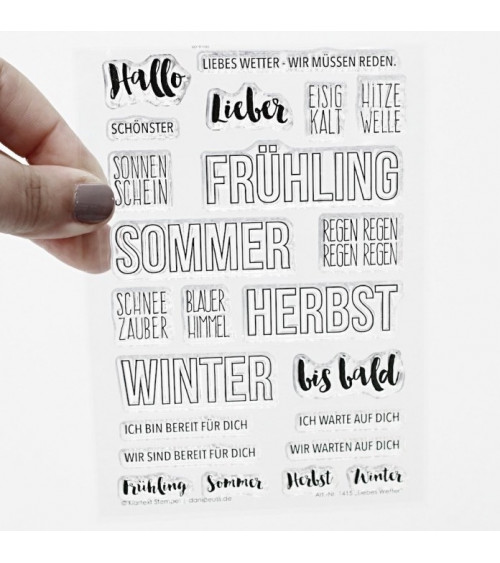 Hallo
LIEBES WETTER - WIR MÜSSEN REDEN.
Lieber
EISIG
KALT
HITZE
WELLE
SCHÖNSTER
SONNEN
SCHEIN
FRÜHLING
SOMMER
REGEN REGEN
REGEN REGEN
SCHNEE
ZAUBER
BLAUER
HIMMEL
HERBST
WINTER
bis bald
ICH BIN BEREIT FÜR DICH
ICH WARTE AUF DICH
WIR SIND BEREIT FÜR DICH
WIR WARTEN AUF DICH
Frühling
Sommer
Herbst
Winter
© Klartext Stempel - danipeuss.de
Art.-Nr. 1415 „Liebes Wetter“